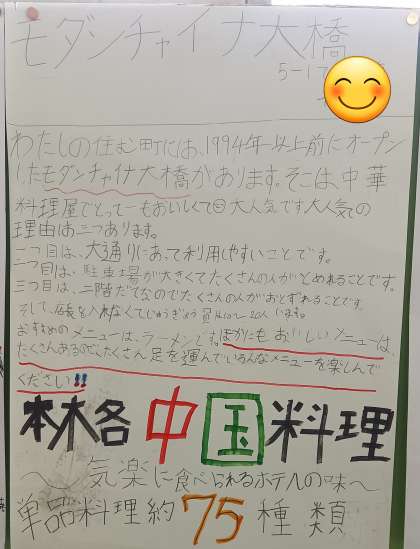 モダンチャイナ大橋
5-17
わたしの住む町には、1994年以上前にオープン
したモダンチャイナ大橋があります。そこは、中華
料理屋でとってもおいしくて大人気です大人気の
理由は三つあります。
一つ目は、大通りにあって利用しやすいことです。
二つ目は、駐車場が大きくてたくさんの人がとめれることです。
三つ目は、二階だてなのでたくさんの人がおとずれることです。
そして、店長を入れなくてじゅうぎょう員は10~20人います。
おすすめのメニューは、ラーメンです。ほかにもおいしいメニューは、
たくさんあるのでたくさん足を運んでいろんなメニューを楽しんで
ください!!
本格中国料理
〜気楽に食べられるホテルの味〜
単品料理約75種類